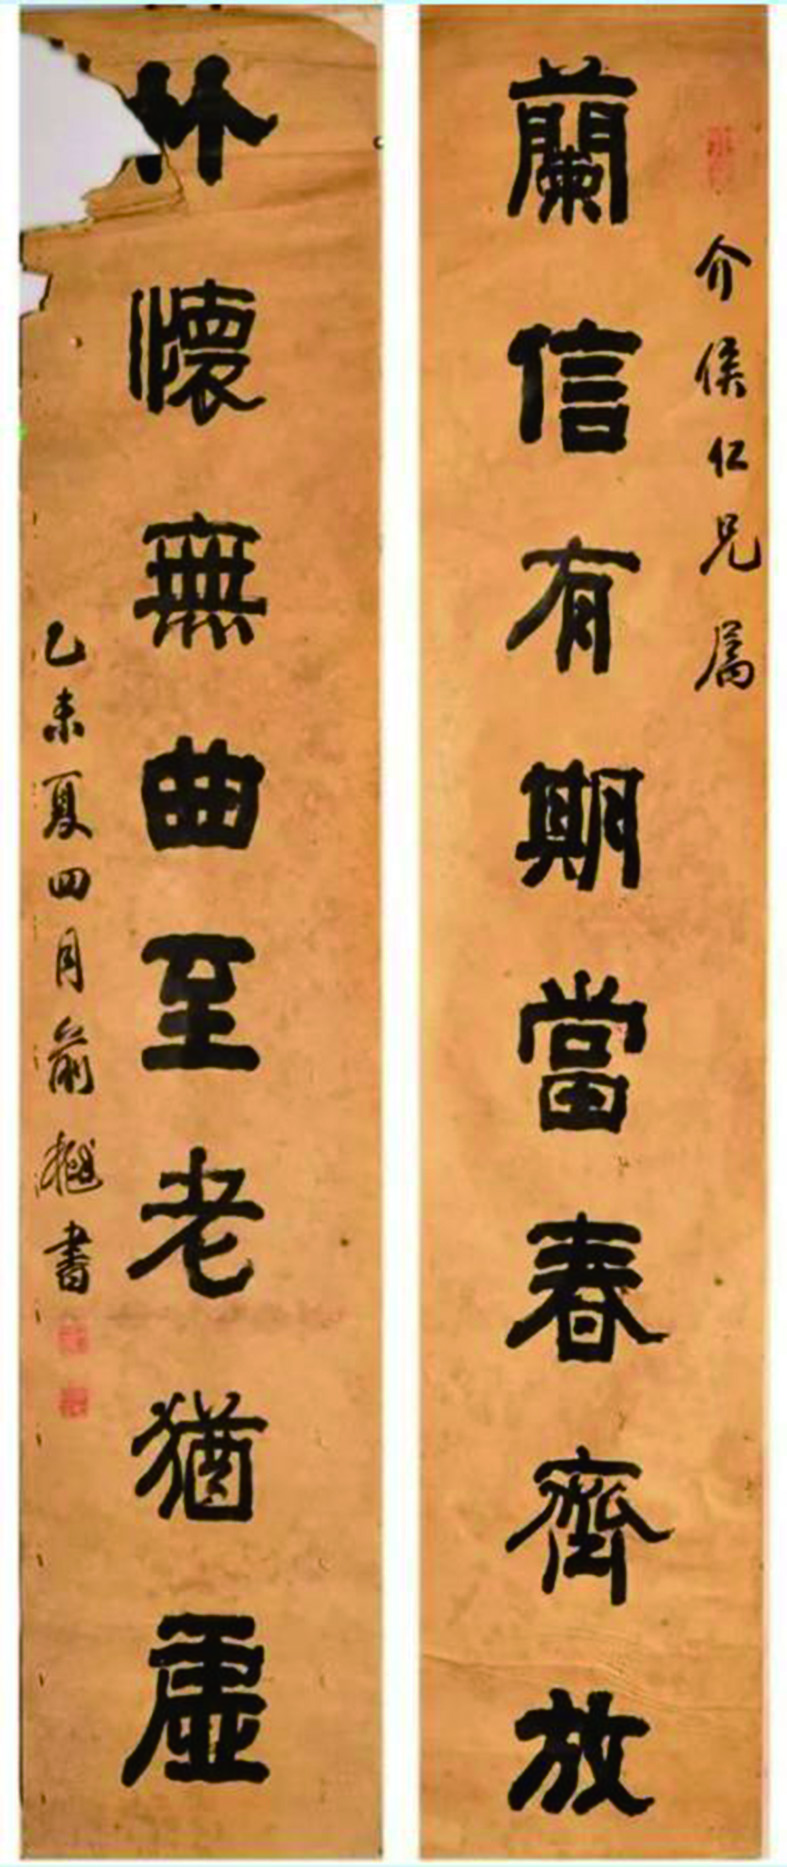 介侯仁兄属
蘭信有期當春齊放
竹懷無曲至老猶虛
乙未夏四月俞樾書